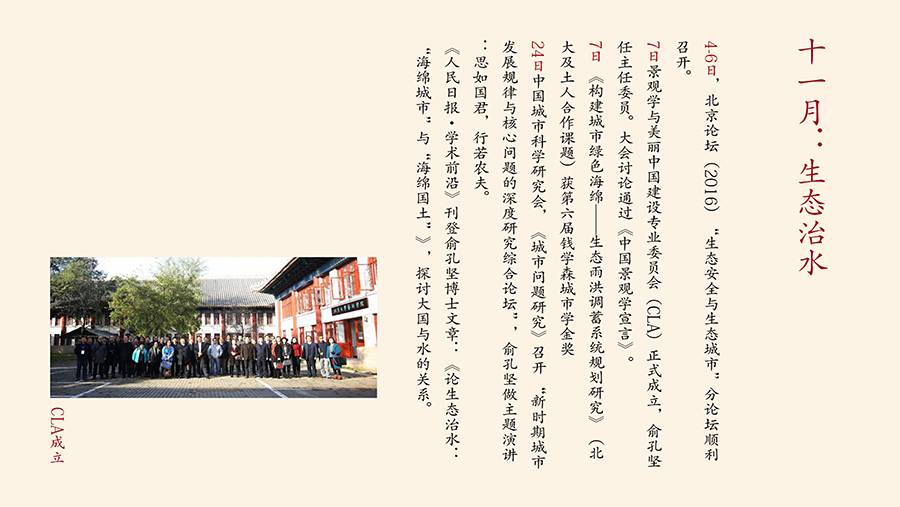 十一月：生态治水
4-6日，北京论坛（2016）“生态安全与生态城市”分论坛顺利
召开。
7日景观学与美丽中国建设专业委员会（CLA）正式成立，俞孔坚
任主任委员。大会讨论通过《中国景观学宣言》。
7日 《构建城市绿色海绵——生态雨洪调蓄系统规划研究》（北
大及土人合作课题）获第六届钱学森城市学金奖
24日中国城市科学研究会，《城市问题研究》召开“新时期城市
发展规律与核心问题的深度研究综合论坛”，俞孔坚做主题演讲
：思如国君，行若农夫。
《人民日报•学术前沿》刊登俞孔坚博士文章：《论生态治水：
“海绵城市”与“海绵国土”》，探讨大国与水的关系。
CLA成立